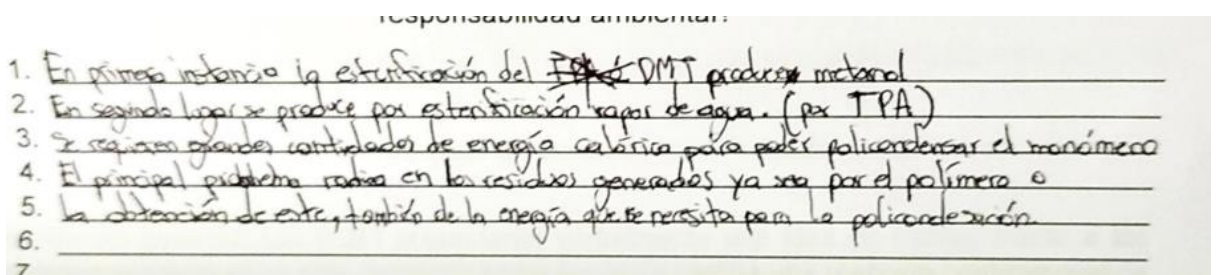 responsabilidad ambiental?
1. En primera instancia la esterificación del DMT produce metanol
2. En segundo lugar se produce por esterificación vapor de agua. (por TPA)
3. Se requieren grandes cantidades de energía calórica para poder policondensar el monómero
4. El principal problema radica en los residuos generados ya sea por el polímero o
5. la obtención de este, también de la energía que se necesita para la policondesación.
6.
7.